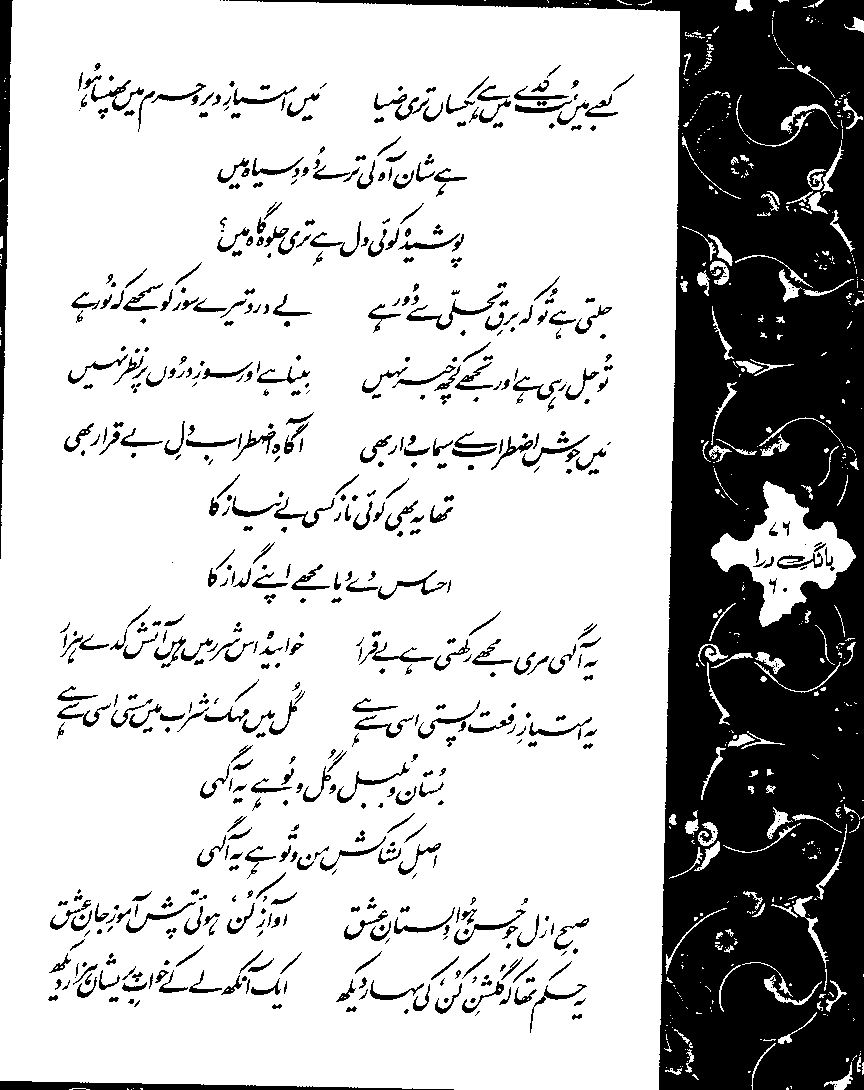 کعبے میں، بُت کدے میں ہے یکساں تری ضیا مَیں امتیازِ دیر و حرم میں پھنسا ہُوا
ہے شان آہ کی ترے دُودِ سیاہ میں
پوشیدہ کوئی دل ہے تری جلوہ گاہ میں؟
جلتی ہے تُو کہ برقِ تجلّی سے دُور ہے بے درد تیرے سوز کو سمجھے کہ نُور ہے
تُو جل رہی ہے اور تجھے کچھ خبر نہیں بینا ہے اور سوزِ دروں پر نظر نہیں
مَیں جوشِ اضطراب سے سیماب وار بھی آگاہِ اضطرابِ دلِ بے قرار بھی
تھا یہ بھی کوئی ناز کسی بے نیاز کا
احساس دے دیا مجھے اپنے گداز کا
یہ آگہی مری مجھے رکھتی ہے بے قرار خوابیدہ اس شرر میں ہیں آتش کدے ہزار
یہ امتیازِ رفعت و پستی اسی سے ہے گُل میں مہک، شراب میں مستی اسی سے ہے
بُستان و بُلبل و گُل و بُو ہے یہ آگہی
اصلِ کشاکشِ من و تُو ہے یہ آگہی
صبحِ ازل جو حُسن ہُوا دِلستانِ عشق آوازِ 'کُن' ہوئی تپش آموزِ جانِ عشق
یہ حکم تھا کہ گُلشنِ 'کُن' کی بہار دیکھ ایک آنکھ لے کے خوابِ پریشاں ہزار دیکھ
۷۶
بانگِ درا
۶۰